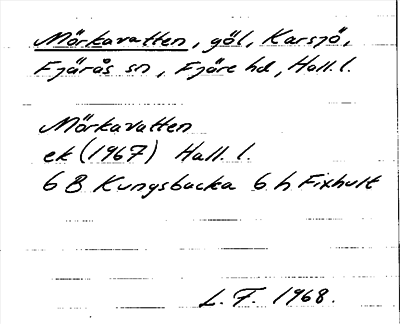 Mörkavatten, göl, Karsjö,
Fjärås sn, Fjäre hd, Hall. l.
Mörkavatten
ek (1967) Hall. l.
6 B Kungsbacka 6 h Fixhult
L. F. 1968.